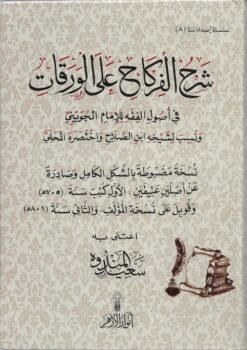 سلسلة إصداراتنا (٨)
شرح الفركاح على الورقات
في أصول الفقه للإمام الجويني
ونسب لشيخه ابن الصلاح واختصره المحلي
نسخة مضبوطة بالشكل الكامل وصادرة
عن أصلين عتيقين: الأول كتب سنة (٧٠٥هـ)
وقوبل على نسخة المؤلف، والثاني سنة (٨٠١هـ)
اعتنى به
سعيد المندوه
أنوار الأزهر